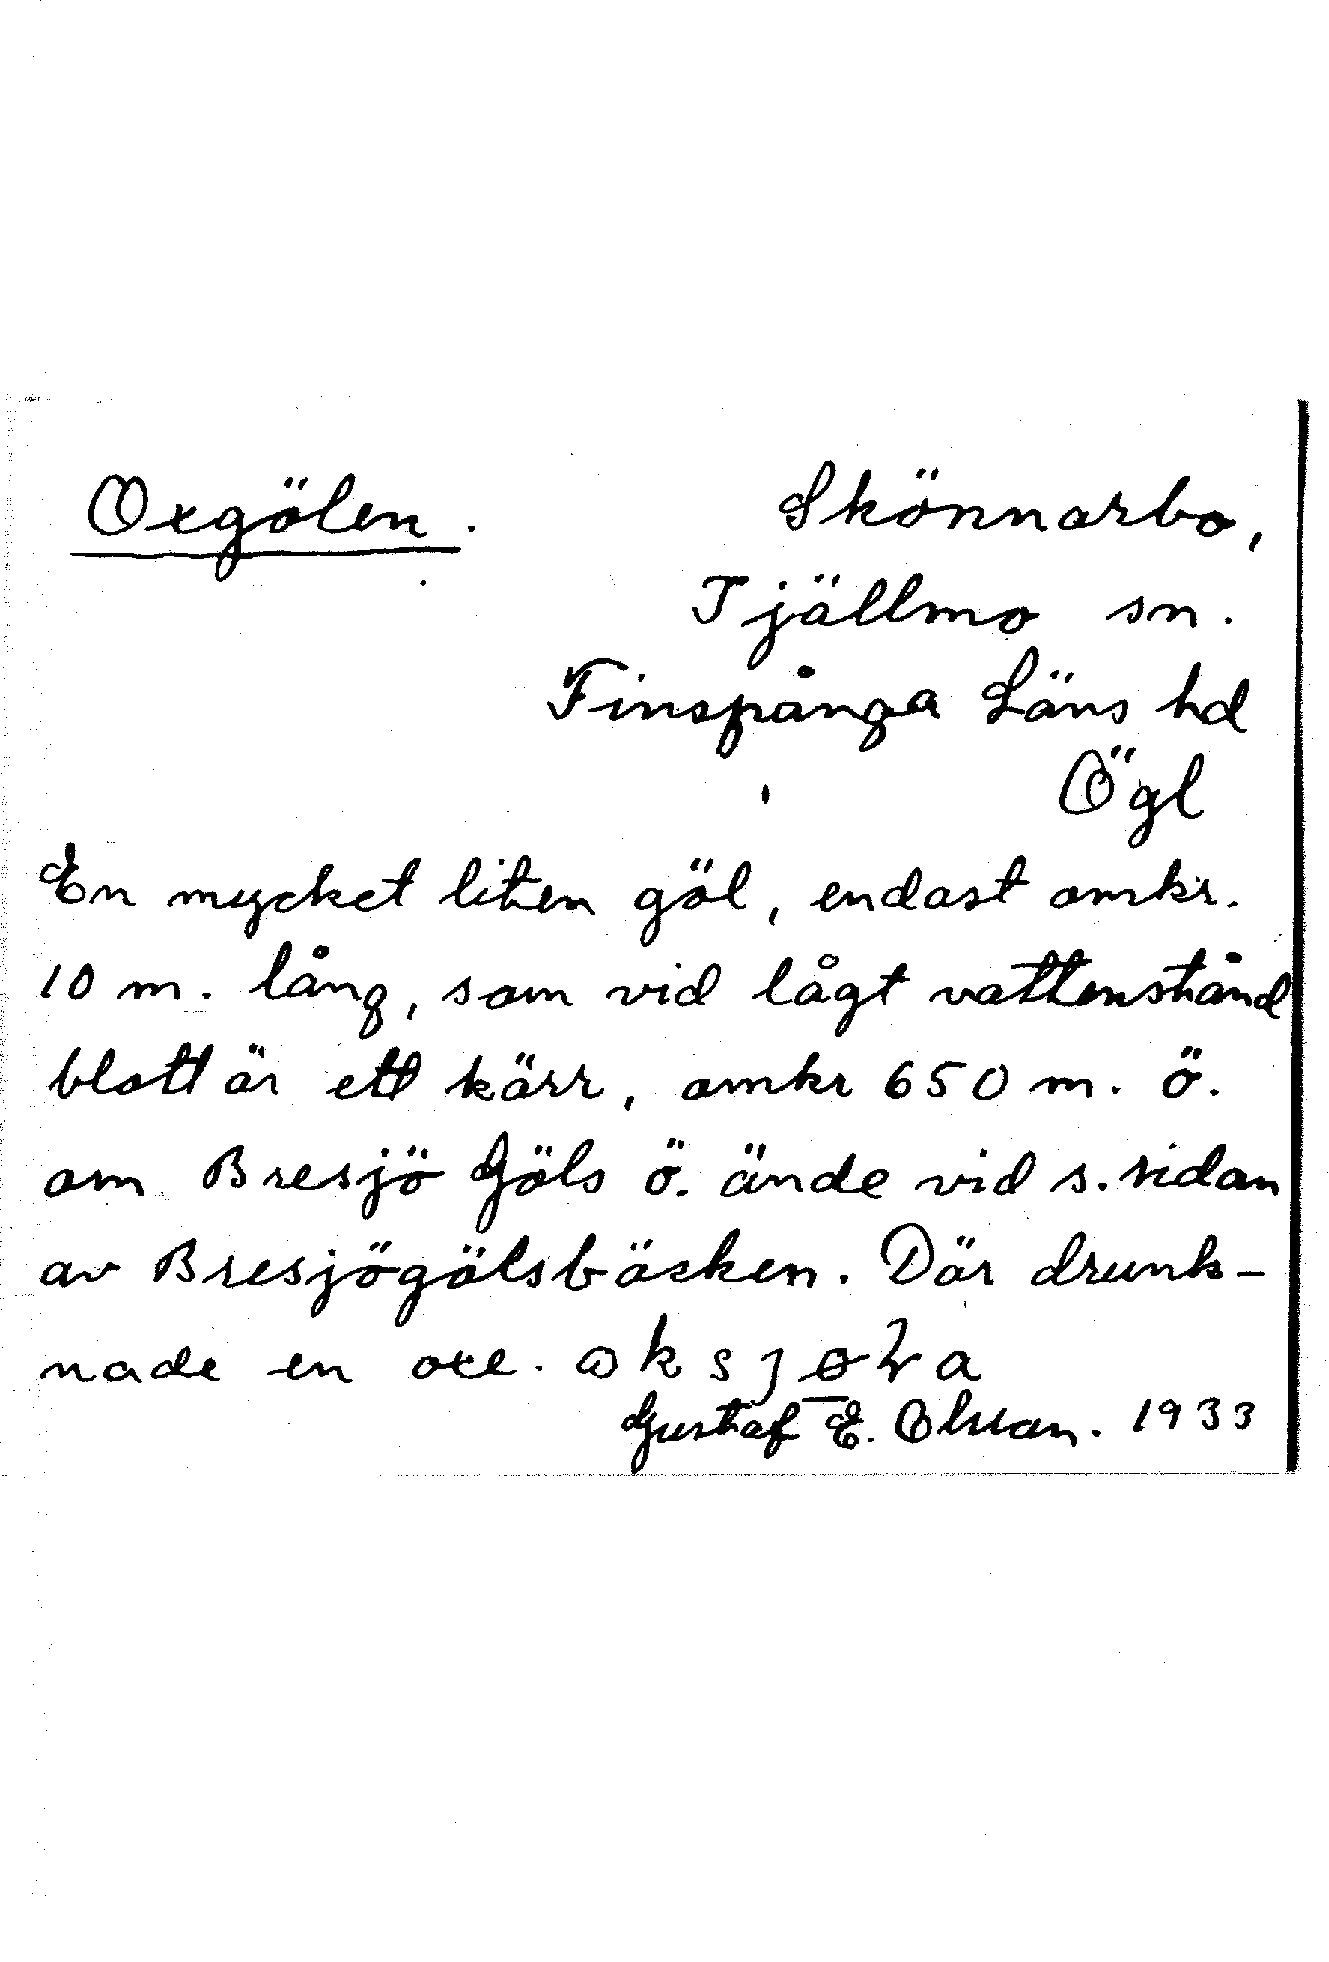 Oxgölen. Skönnarbo,
Tjällmo sn.
Finspånga Läns hd
Ögl
En mycket liten göl, endast omkr.
10 m. lång, som vid lågt vattenstånd
blott är ett kärr, omkr 650 m. ö.
om Bresjö Göls ö. ände vid s. sidan
av Bresjögölsbäcken. Där drunk-
nade en oxe.
Gustaf E. Olsson. 1933